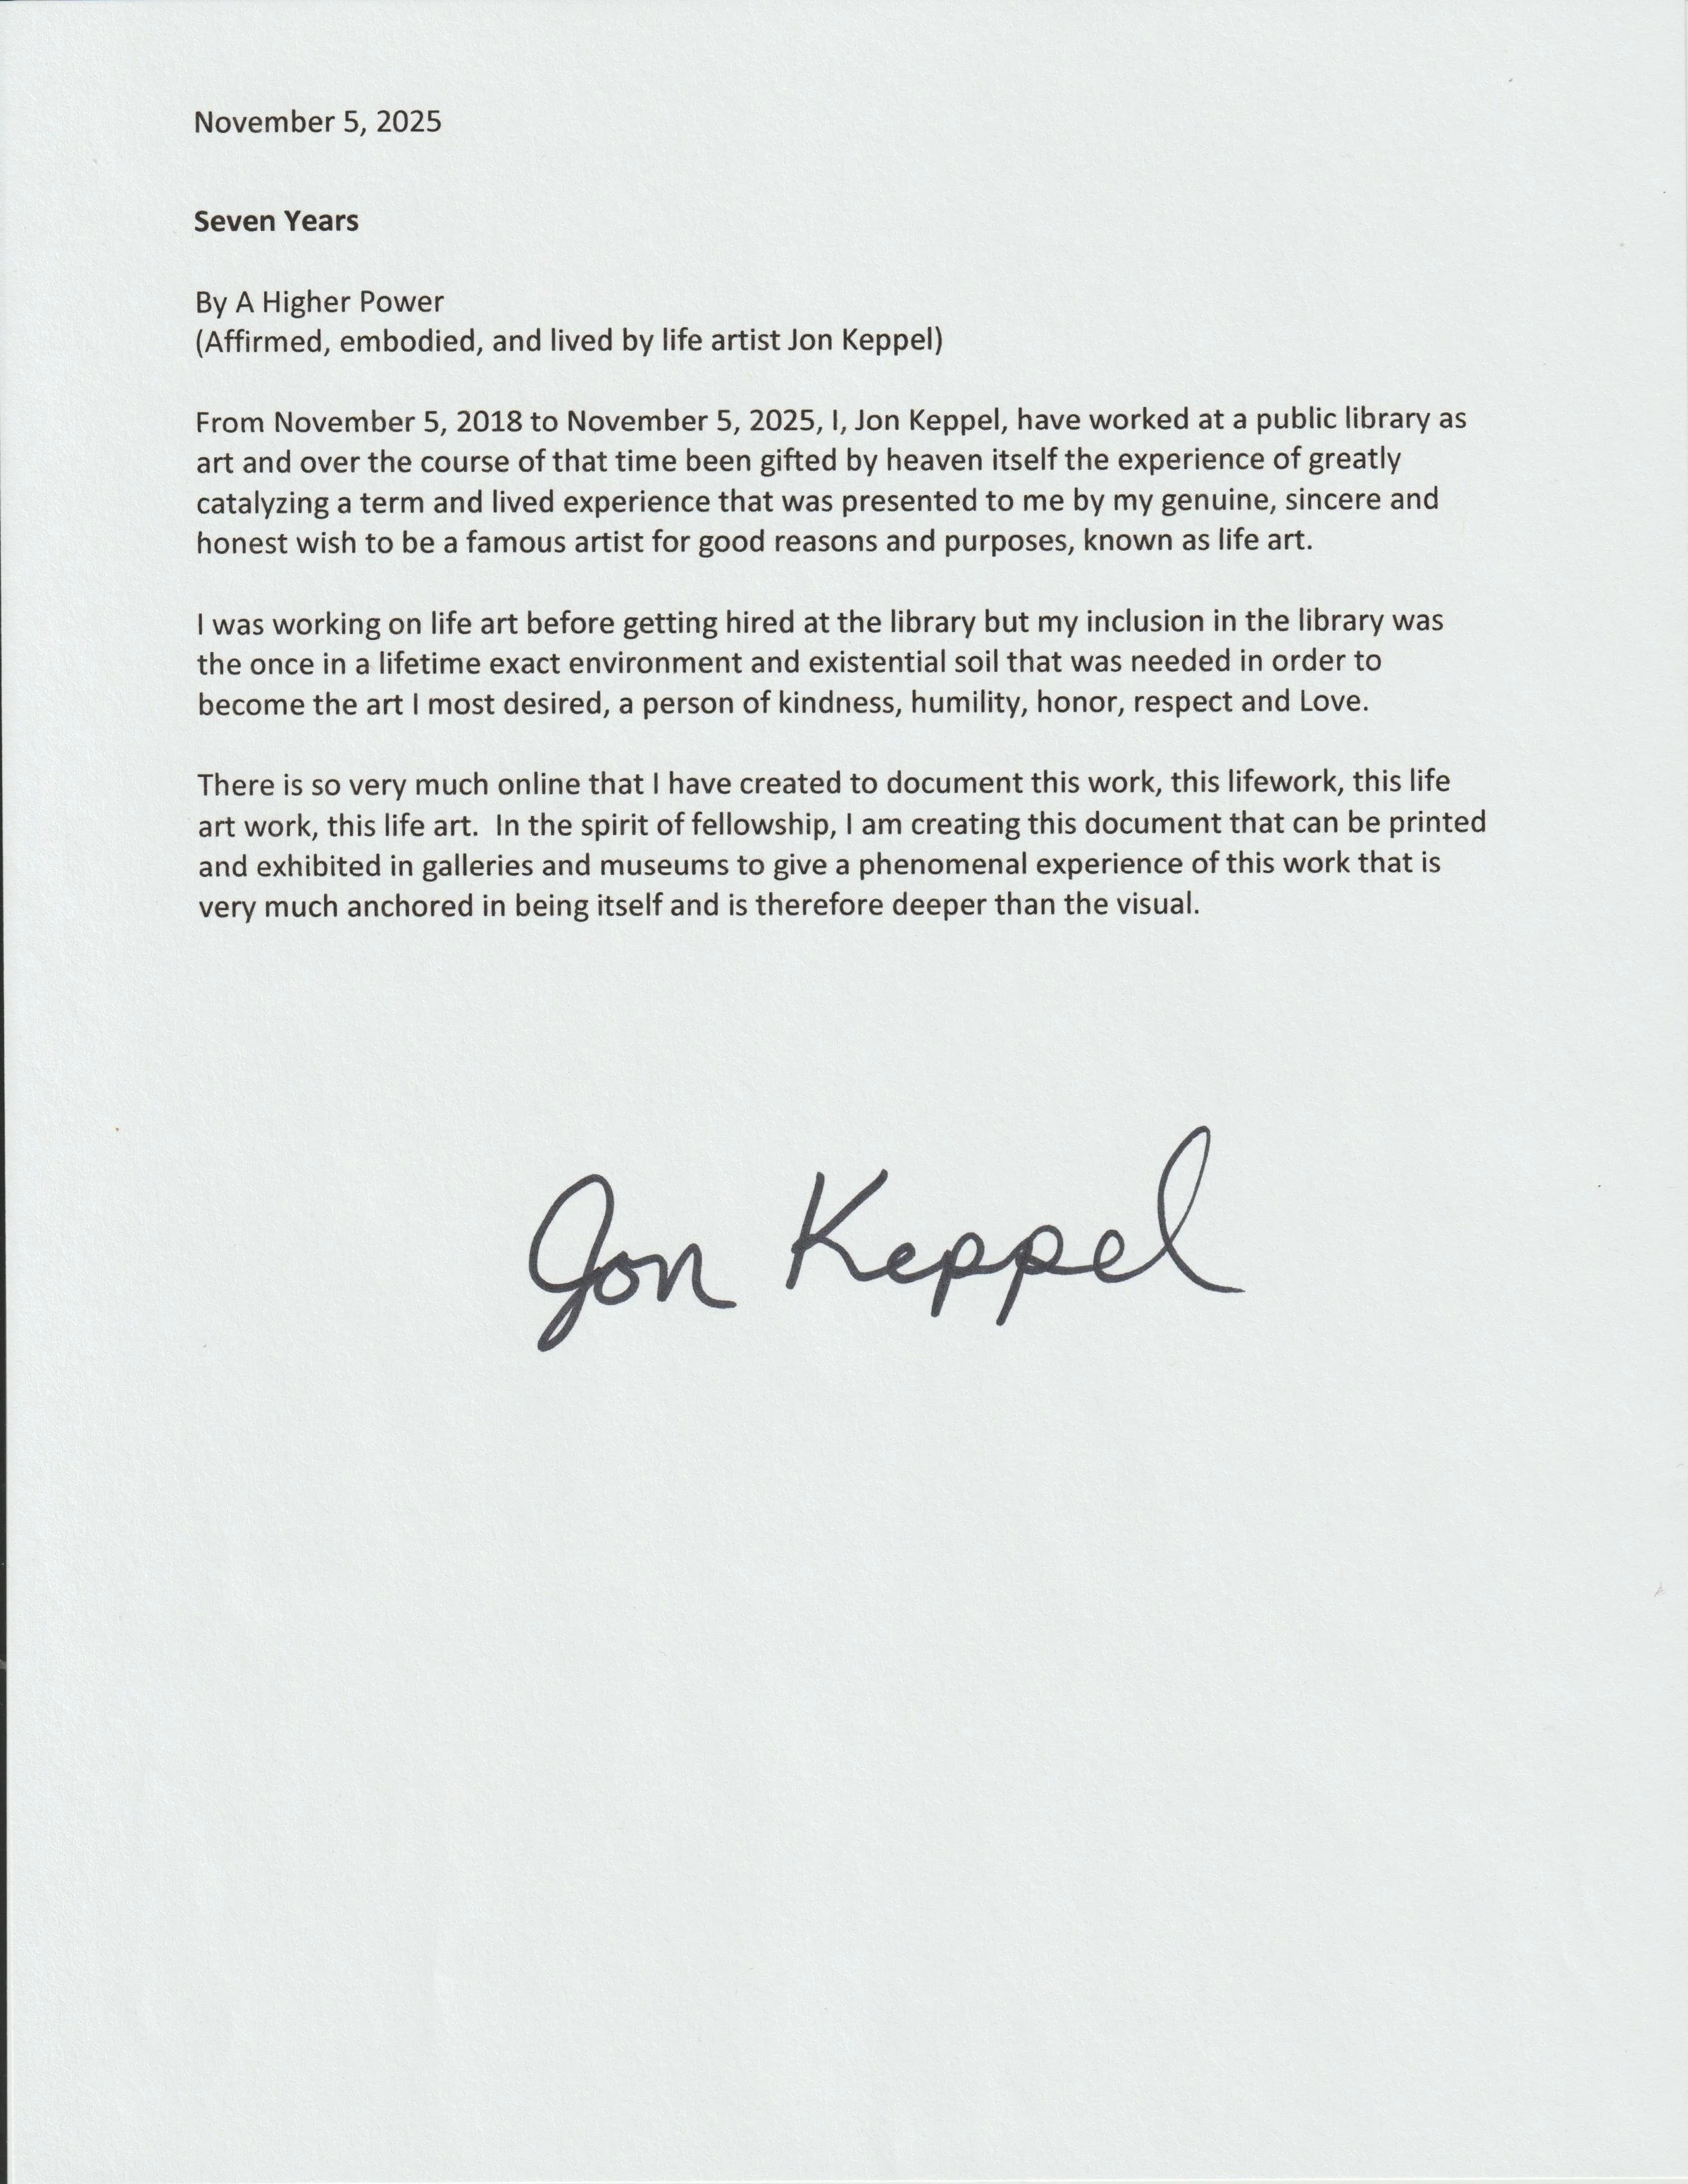 November 5, 2025
Seven Years
By A Higher Power
(Affirmed, embodied, and lived by life artist Jon Keppel)
From November 5, 2018 to November 5, 2025, I, Jon Keppel, have worked at a public library as
art and over the course of that time been gifted by heaven itself the experience of greatly
catalyzing a term and lived experience that was presented to me by my genuine, sincere and
honest wish to be a famous artist for good reasons and purposes, known as life art.
I was working on life art before getting hired at the library but my inclusion in the library was
the once in a lifetime exact environment and existential soil that was needed in order to
become the art I most desired, a person of kindness, humility, honor, respect and Love.
There is so very much online that I have created to document this work, this lifework, this life
art work, this life art.  In the spirit of fellowship, I am creating this document that can be printed
and exhibited in galleries and museums to give a phenomenal experience of this work that is
very much anchored in being itself and is therefore deeper than the visual.
Jon Keppel